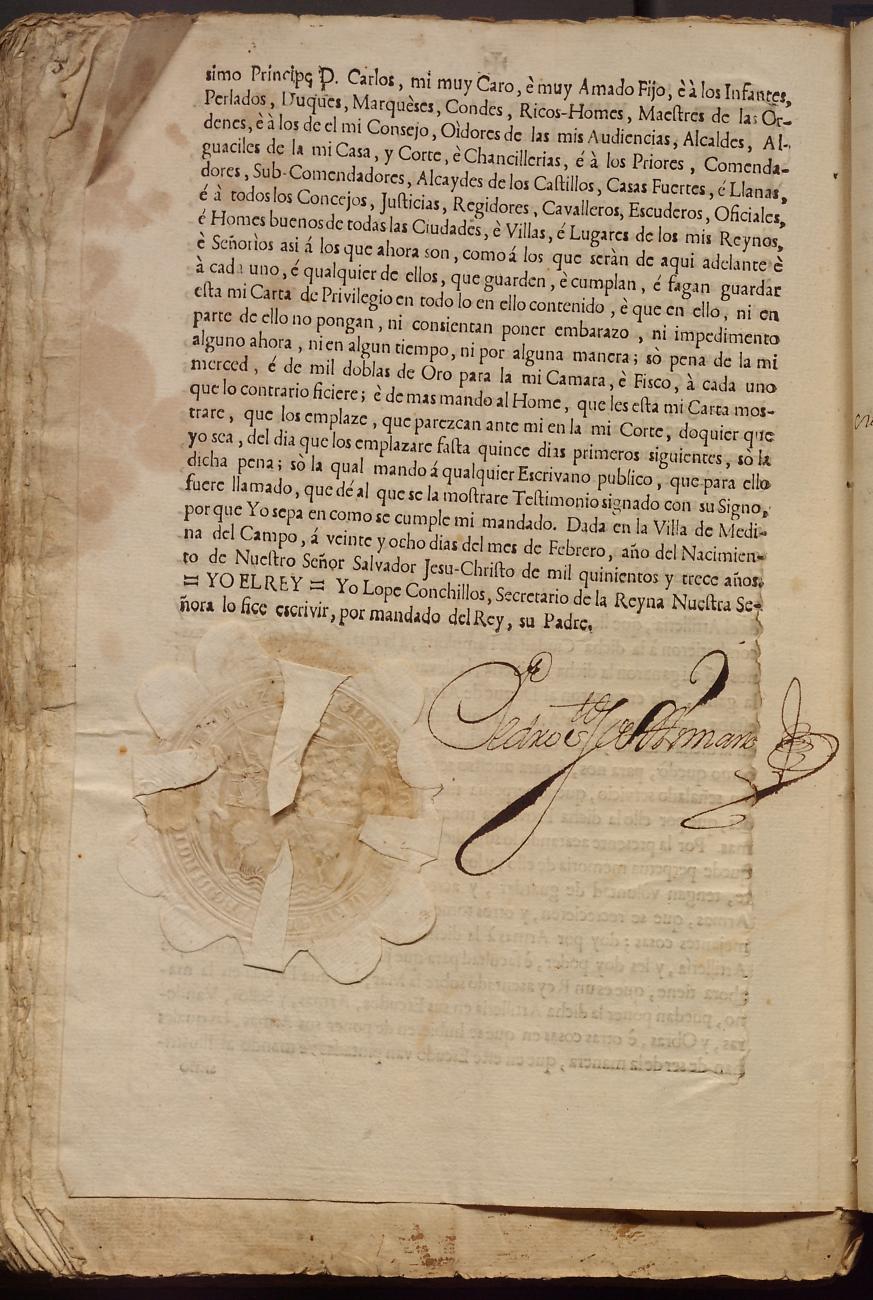 simo Principe D. Carlos, mi muy Caro, è muy Amado Fijo, è à los Infantes,
Perlados, Duques, Marquèses, Condes, Ricos-Homes, Maestres de las Or-
denes, è à los de el mi Consejo, Oìdores de las mis Audiencias, Alcaldes, Al-
guaciles de la mi Casa, y Corte, è Chancillerias, é à los Priores, Comenda-
dores, Sub-Comendadores, Alcaydes de los Castillos, Casas Fuertes, é Llanas,
é à todos los Concejos, Justicias, Regidores, Cavalleros, Escuderos, Oficiales,
é Homes buenos de todas las Ciudades, è Villas, é Lugares de los mis Reynos,
è Señorìos asi á los que ahora son, como á los que seràn de aqui adelante è
à cada uno, é qualquier de ellos, que guarden, è cumplan, é fagan guardar
esta mi Carta de Privilegio en todo lo en ello contenido, è que en ello, ni en
parte de ello no pongan, ni consientan poner embarazo, ni impedimento
alguno ahora, ni en algun tiempo, ni por alguna manera; sò pena de la mi
merced, é de mil doblas de Oro para la mi Camara, è Fisco, à cada uno
que lo contrario ficiere; è de mas mando al Home, que les esta mi Carta mos-
trare, que los emplaze, que parezcan ante mi en la mi Corte, doquier que
yo sea, del dia que los emplazare fasta quince dias primeros siguientes, sò la
dicha pena; sò la qual mando á qualquier Escrivano publico, que para ello
fuere llamado, que dé al que se la mostrare Testimonio signado con su Signo,
por que Yo sepa en como se cumple mi mandado. Dada en la Villa de Medi-
na del Campo, á veinte y ocho dias del mes de Febrero, año del Nacimien-
to de Nuestro Señor Salvador Jesu-Christo de mil quinientos y trece años.
= YO EL REY = Yo Lope Conchillos, Secretario de la Reyna Nuestra Se-
ñora lo fice escrivir, por mandado del Rey, su Padre.
Pedro